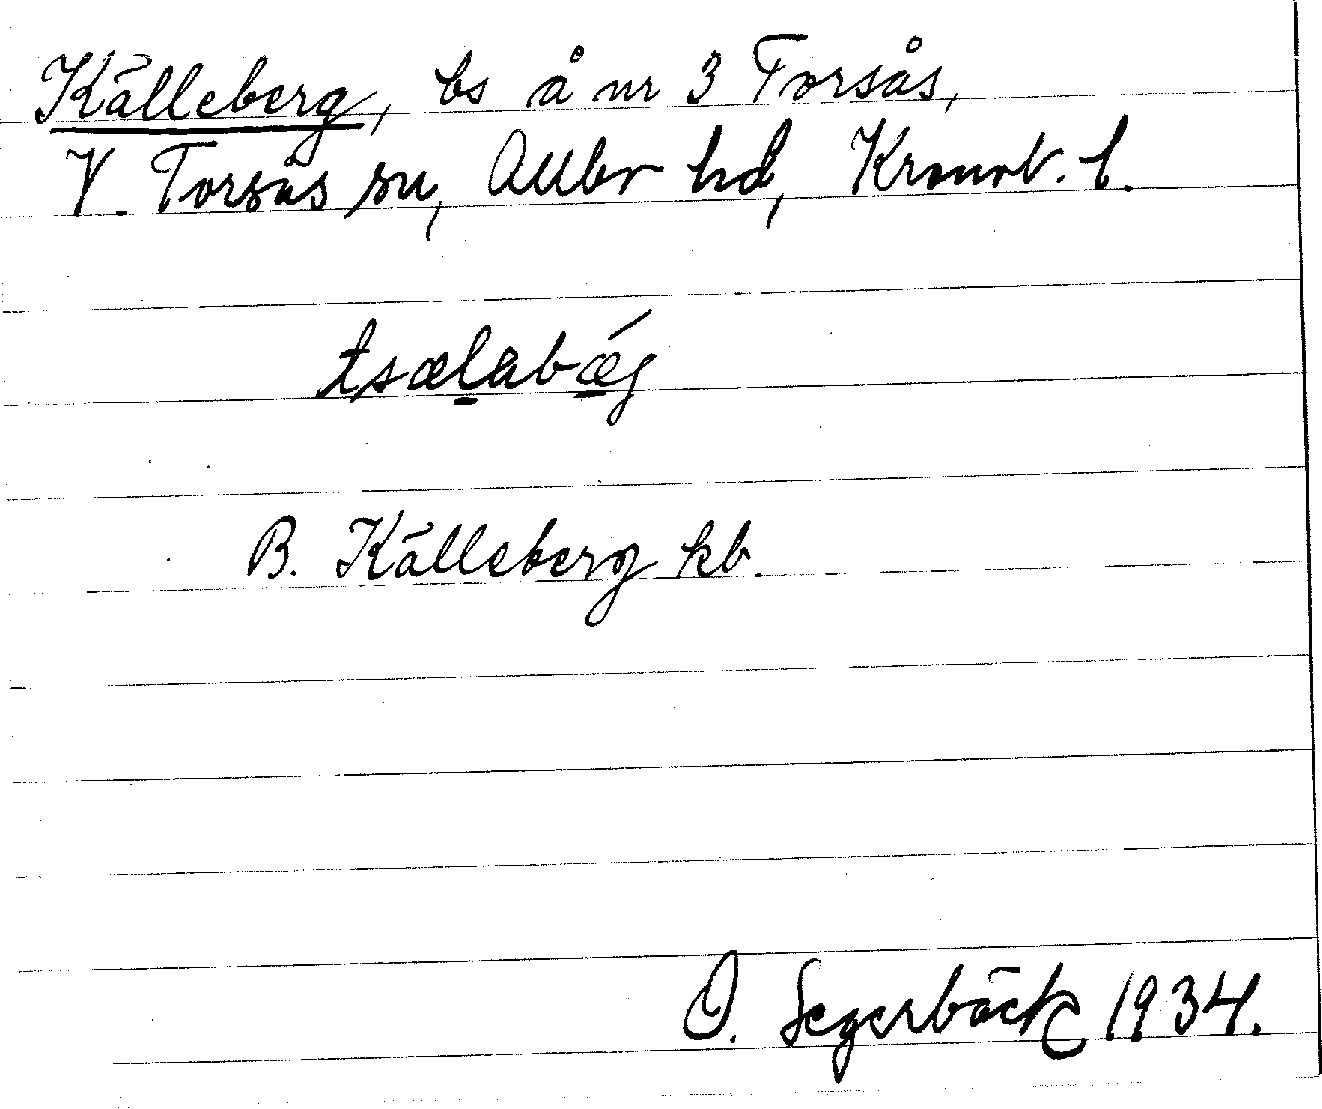 Källeberg, bs å nr 3 Torsås,
V. Torsås sn, Allbo hd, Kronob. l.
tsælabǽ̱g
B. Källeberg kb.
O. Segerbäck 1934.